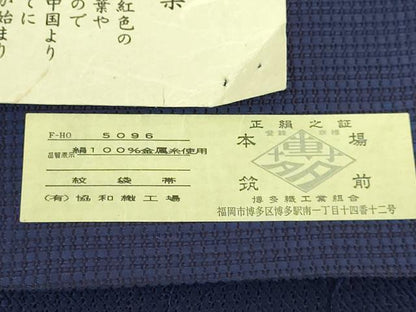 紅色の
葉や
ので
中国より
てに
が始まり
F-HO 5096
品質表示 絹100%金属糸使用
紋袋帯
(有)協和織工場
正絹之証
登録 商標
本場
博多
筑前
博多織工業組合
福岡市博多区博多駅南一丁目十四番十二号